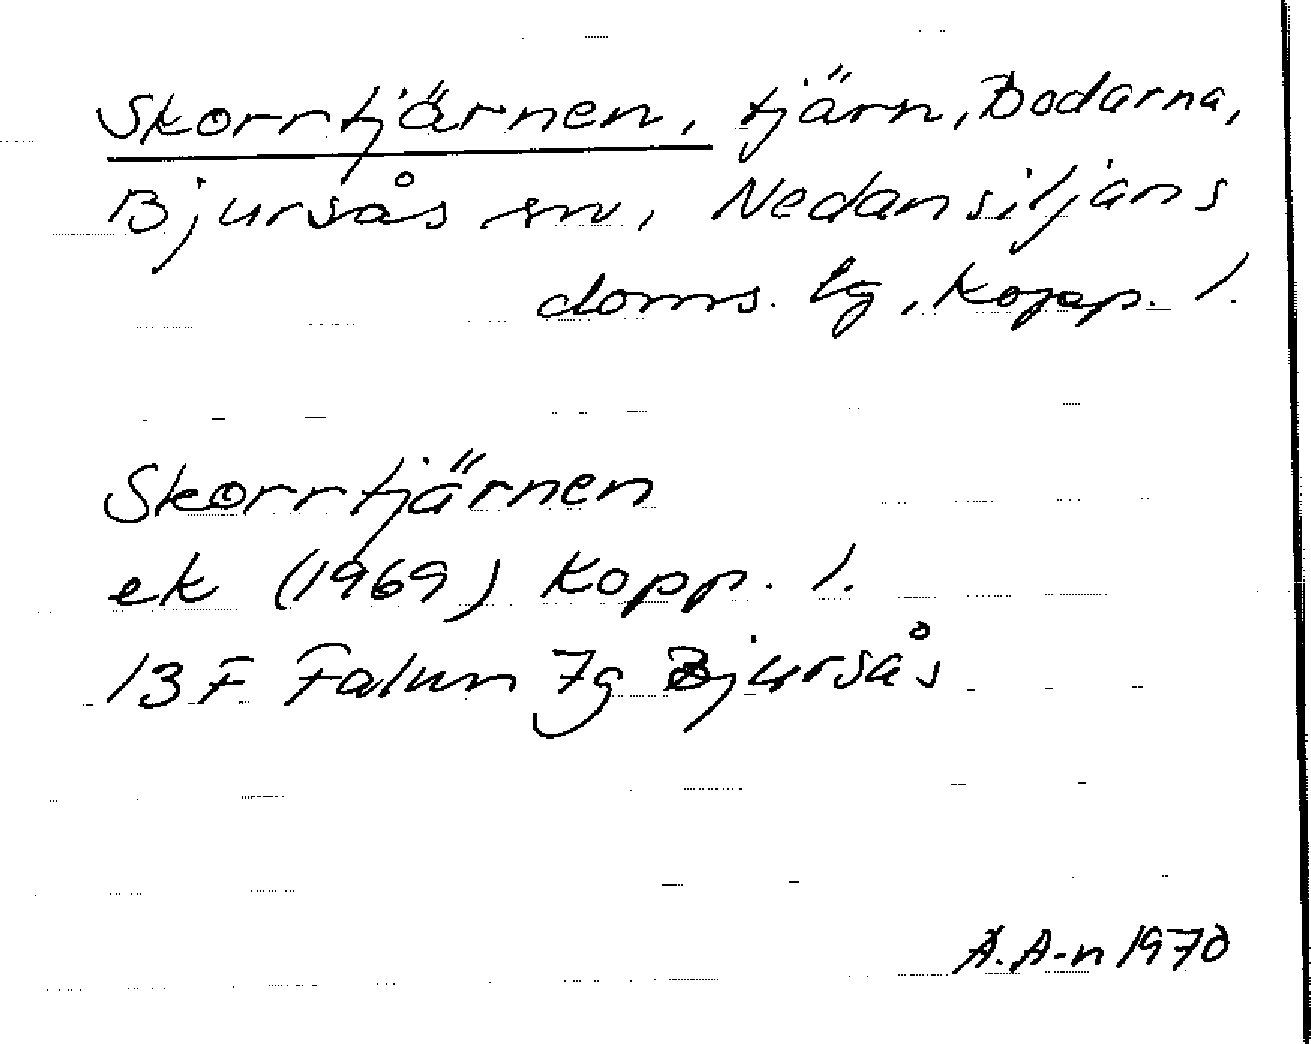 Skorrtjärnen, tjärn, Bodarna,
Bjursås sn, Nedansiljans
doms. lg, Kopp. l.
Skorrtjärnen
ek (1969) Kopp. l.
13 F Falun 7g Bjursås
A. A-n 1970